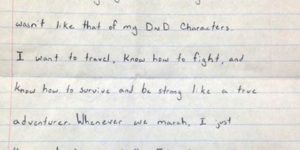 wasn't like that of my DnD characters.
I want to travel, know how to fight, and
know how to survive and be strong like a true
adventurer. Whenever we march, I just